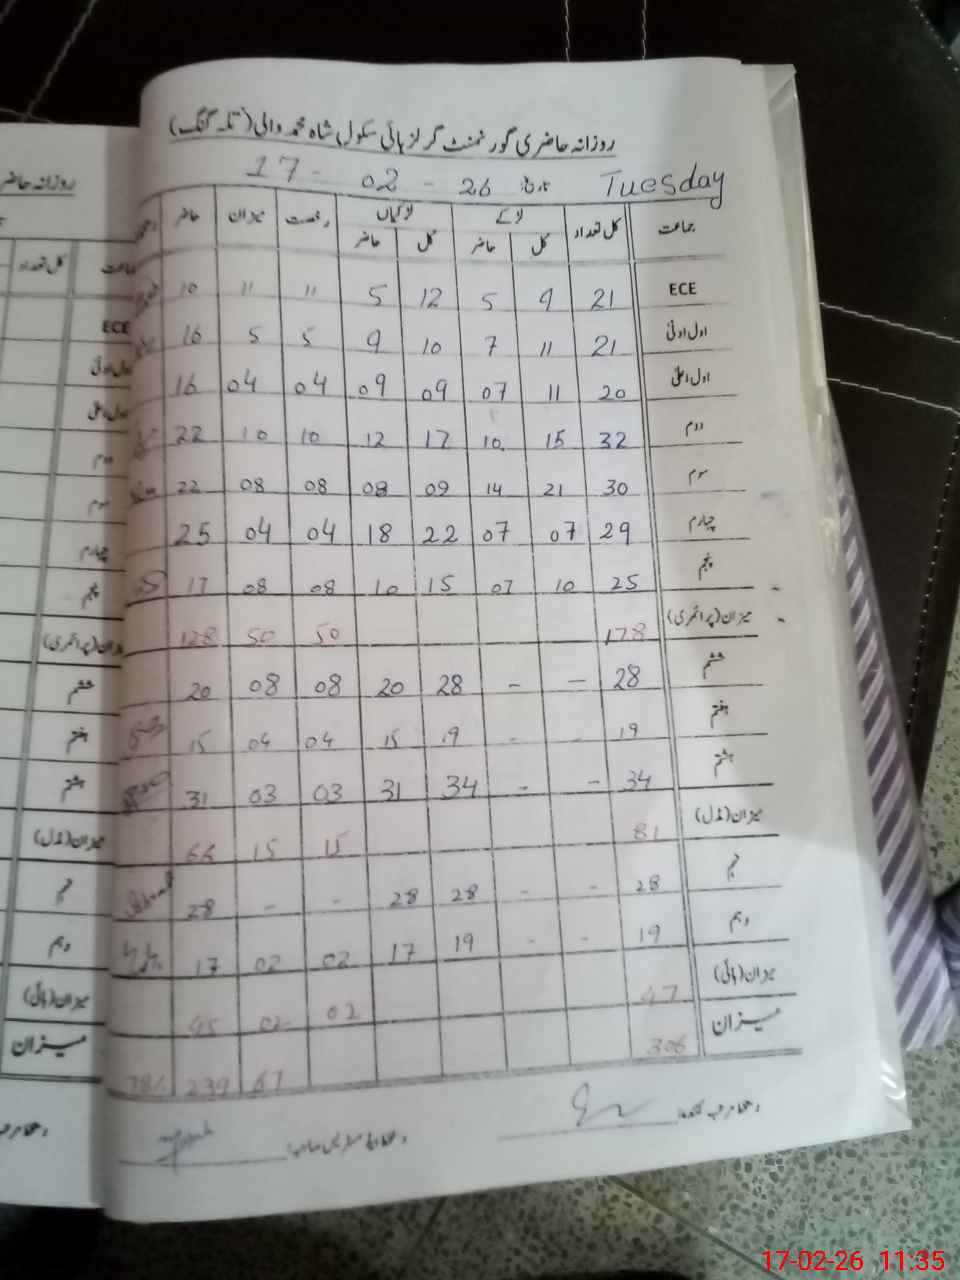 روزانہ حاضری گورنمنٹ گرلز ہائی سکول شاہ محمد والی (تلہ گنگ)
Tuesday تاریخ 17 - 02 - 26
جماعت کل تعداد لڑکے لڑکیاں رخصت میزان حاضر
کل حاضر کل حاضر
ECE 21 9 5 12 5 11 11 10
اول ادنیٰ 21 11 7 10 9 5 5 16
اول اعلیٰ 20 11 07 09 09 04 04 16
دوم 32 15 10 17 12 10 10 22
سوم 30 21 14 09 08 08 08 22
چہارم 29 07 07 22 18 04 04 25
پنجم 25 10 07 15 10 08 08 17
میزان (پرائمری) 178 50 50 128
ششم 28 - - 28 20 08 08 20
ہفتم 19 - - 19 15 04 04 15
ہشتم 34 - - 34 31 03 03 31
میزان (مڈل) 81 15 15 66
نہم 28 - - 28 28 - - 28
دہم 19 - - 19 17 02 02 17
میزان (ہائی) 47 02 02 45
میزان 306 67 239 78%
دستخط مرتب کنندہ
دستخط ہیڈ مسٹریس صاحبہ
روزانہ حاضر
کل تعداد
ECE
دوم
سوم
چہارم
پنجم
ششم
ہفتم
ہشتم
میزان (مڈل)
نہم
دہم
میزان (ہائی)
میزان
17-02-26 11:35